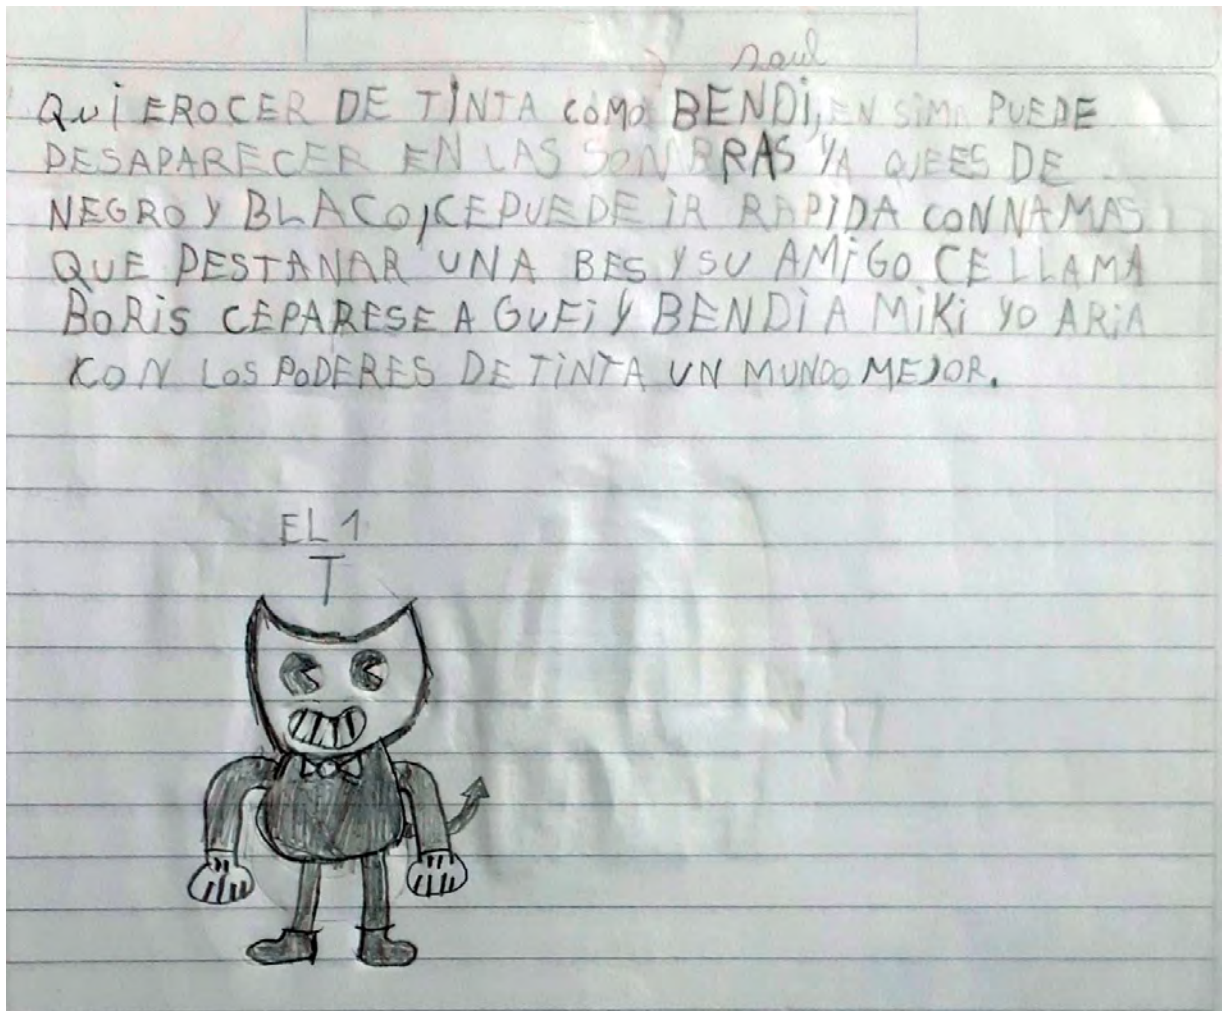 saul
QUIEROCER DE TINTA COMO BENDI, EN SIMA PUEDE
DESAPARECER EN LAS SONBRAS YA QEES DE
NEGRO Y BLACO, CEPUEDE IR RAPIDA CONNAMAS
QUE PESTANAR UNA BES Y SU AMIGO CE LLAMA
BORIS CEPARESE A GUFI Y BENDI A MIKI YO ARIA
CON LOS PODERES DE TINTA UN MUNDO MEJOR.
EL 1